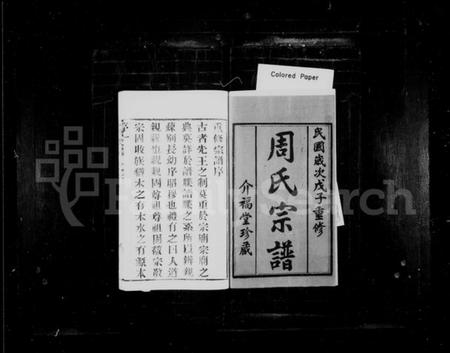 Colored Paper
民國歲次戊子重修
周氏宗譜
介福堂珍藏
重修宗譜序
古者先王之制莫重於宗廟宗廟之
典莫詳於譜牒譜牒之系所以辨親
疎別長幼序昭穆也禮有之曰人道
親親也親親故尊祖尊祖故敬宗敬
宗固收族猶木之有本水之有源木